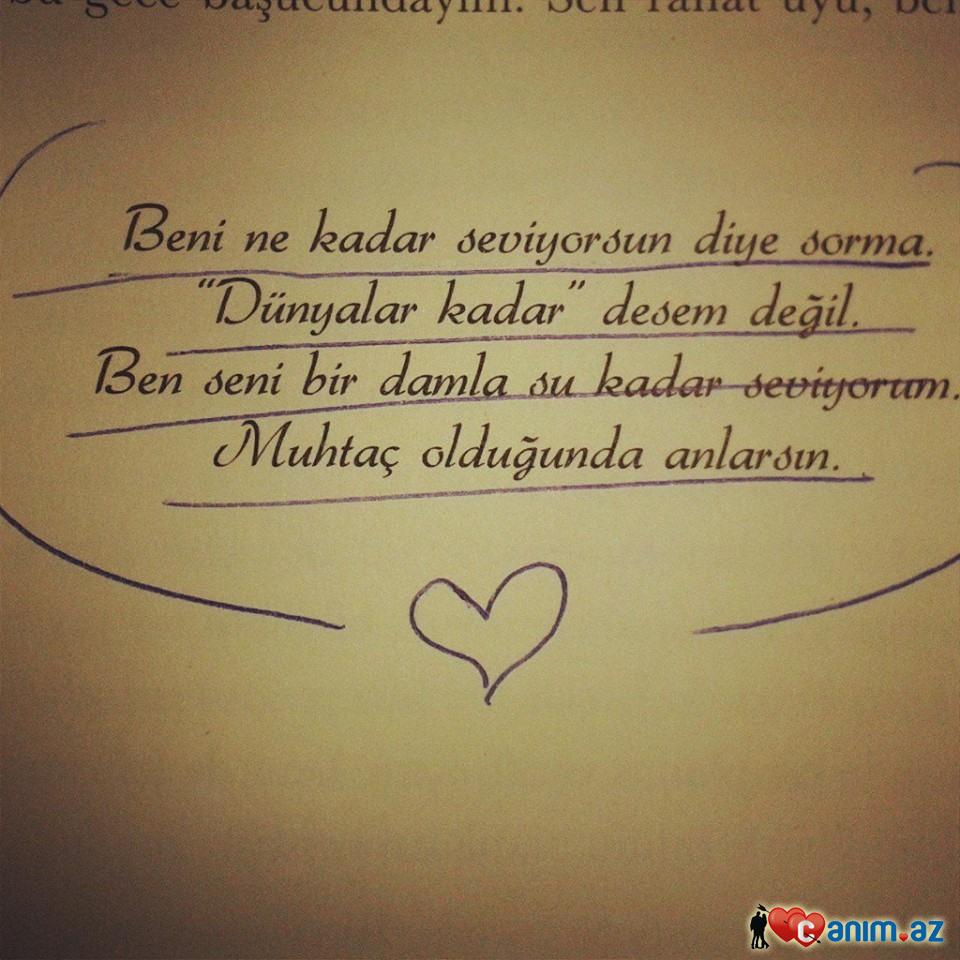 bu gece başucundayım. Sen rahat uyu, ben
Beni ne kadar seviyorsun diye sorma.
“Dünyalar kadar” desem değil.
Ben seni bir damla su kadar seviyorum.
Muhtaç olduğunda anlarsın.
Canım.az